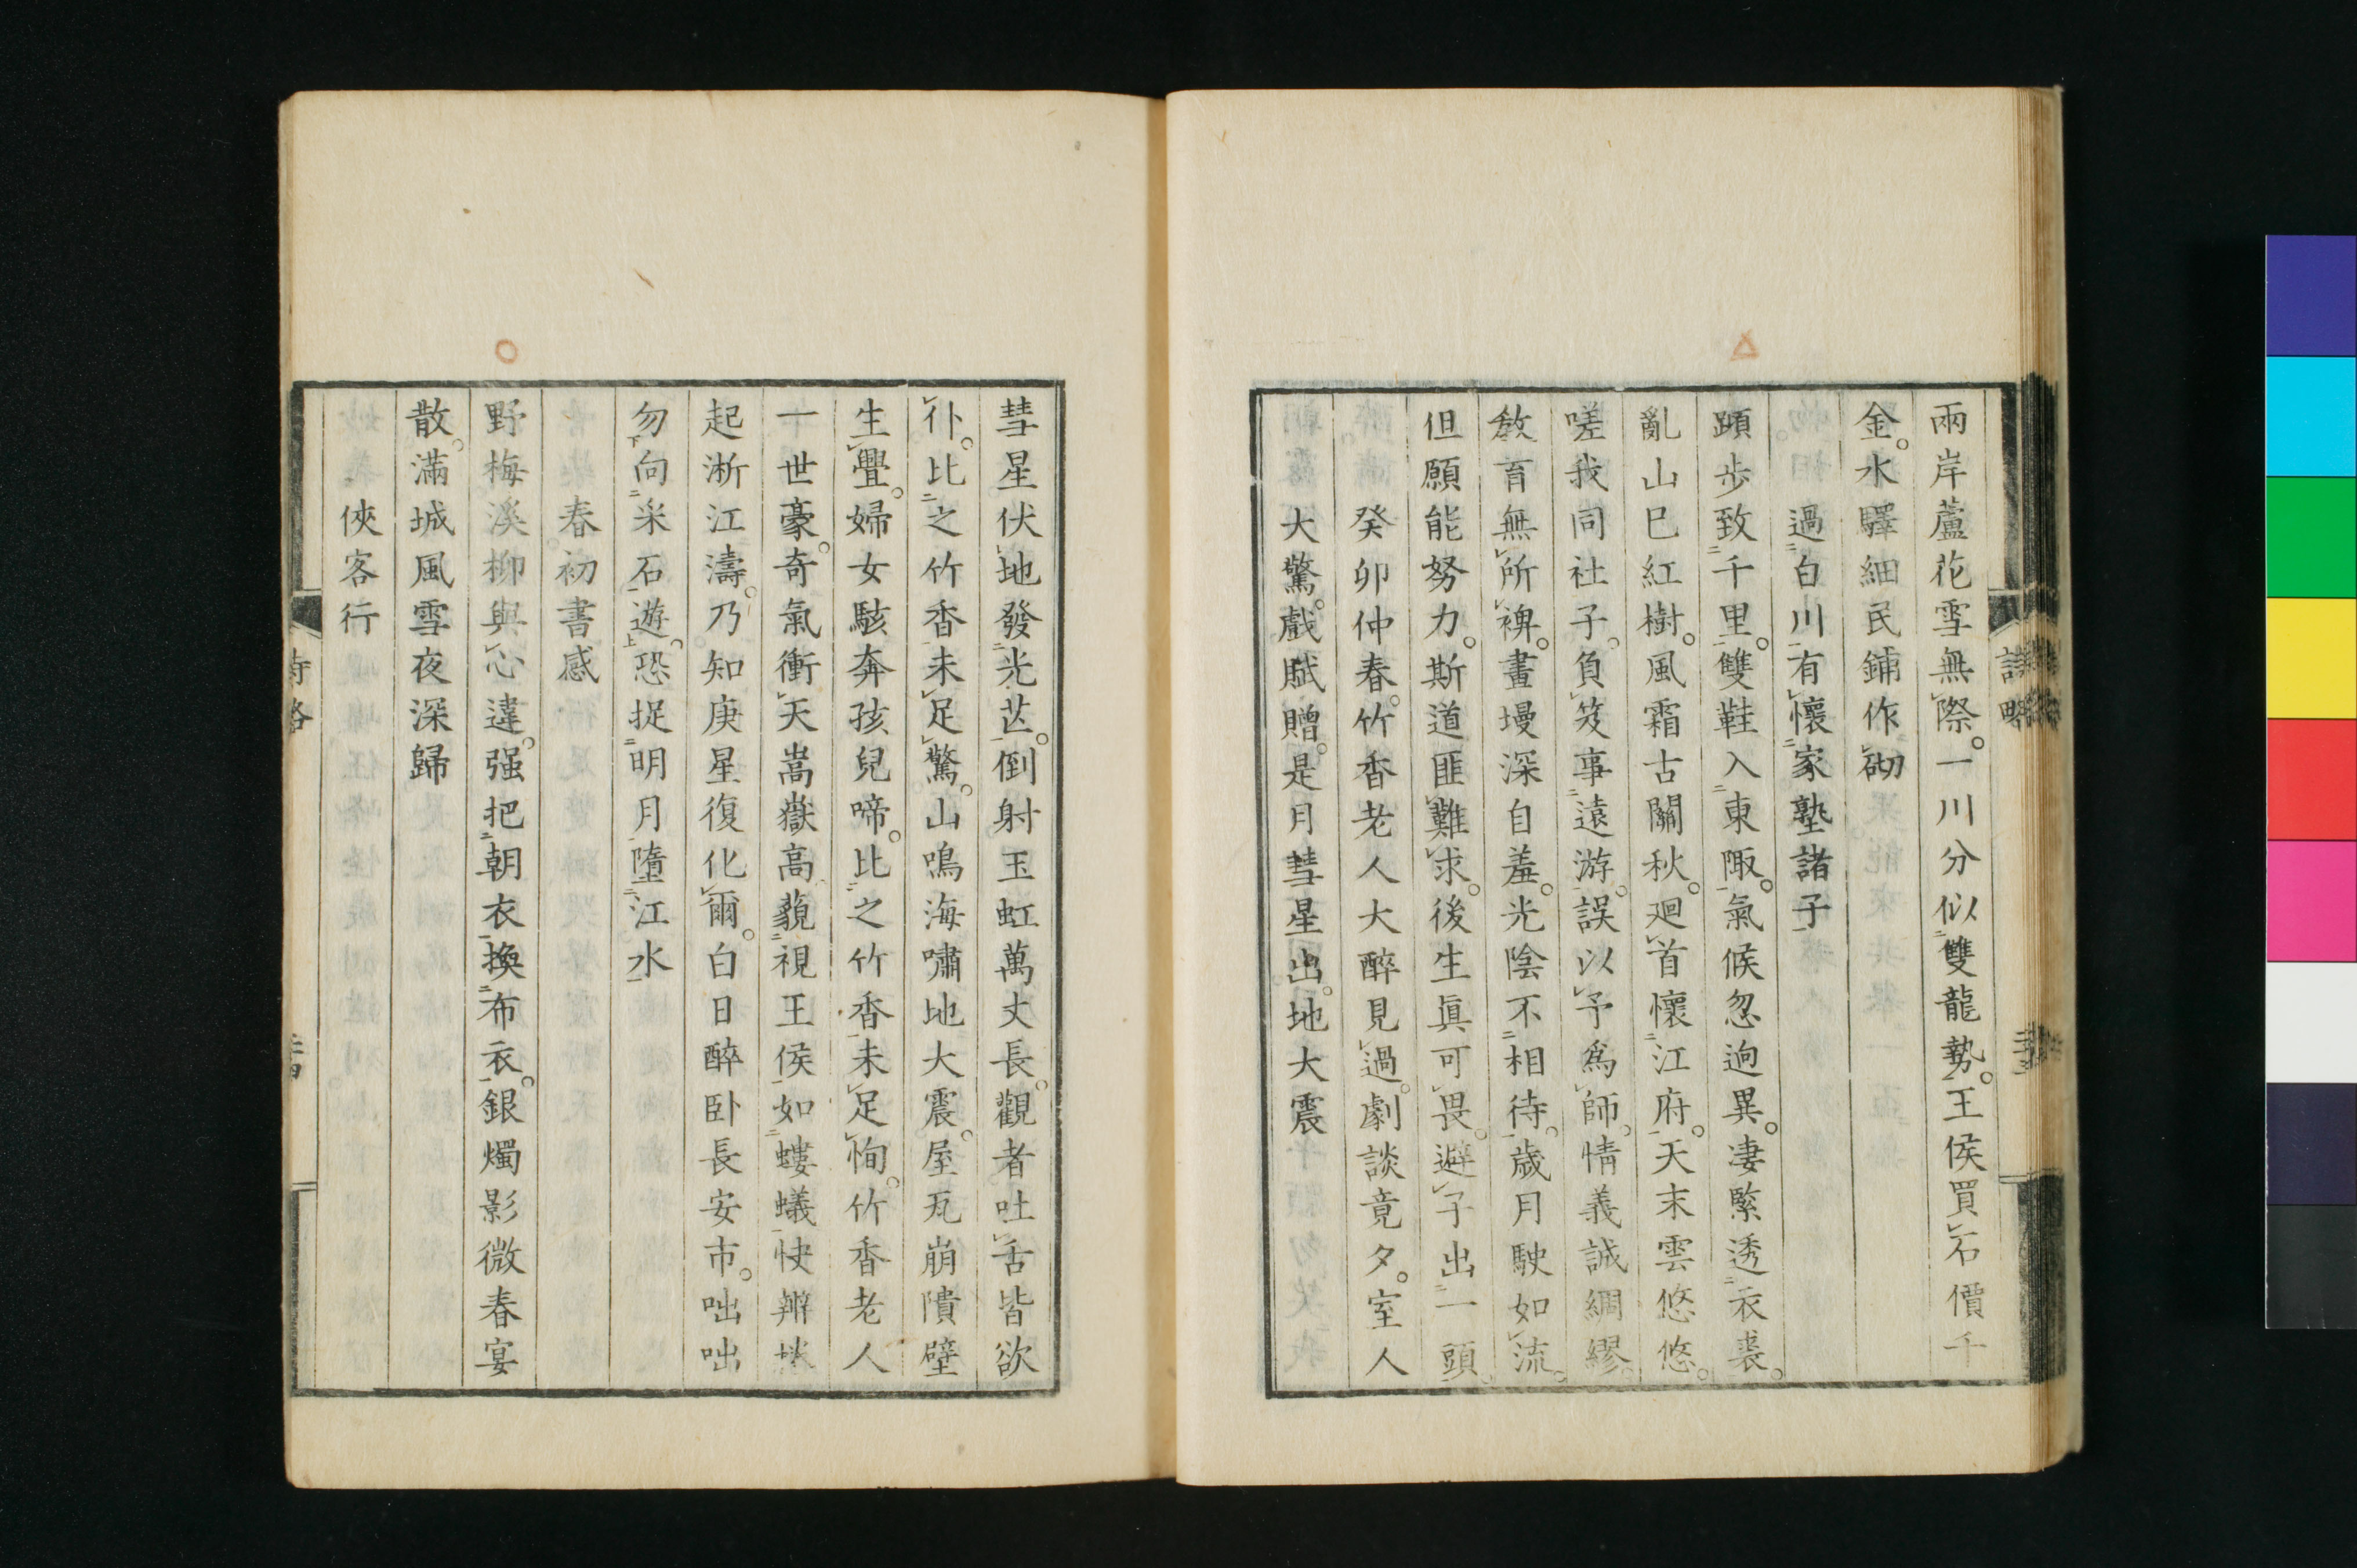 兩岸蘆花雪無際。一川分似雙龍勢。王侯買石價千
金。水驛細民鋪作砌
過白川有懷家塾諸子
蹞步致千里。雙鞋入東陬。氣候忽逈異。凄緊透衣裘。
亂山已紅樹。風霜古關秋。廻首懷江府。天末雲悠悠。
嗟我同社子。負笈事遠游。誤以予爲師。情義誠綢繆。
敎育無所裨。畫墁深自羞。光陰不相待。歲月駛如流。
但願能努力。斯道匪難求。後生眞可畏。避子出一頭。
癸卯仲春。竹香老人大醉見過。劇談竟夕。室人
大驚。戲賦贈。是月彗星出。地大震
彗星伏地發光芒。倒射玉虹萬丈長。觀者吐舌皆欲
仆。比之竹香未足驚。山鳴海嘯地大震。屋瓦崩隤壁
生舋。婦女駭奔孩兒啼。比之竹香未足恂。竹香老人
一世豪。奇氣衝天嵩嶽高。藐視王侯如螻蟻快辨
起淅江濤。乃知庚星復化爾。白日醉卧長安市。咄咄
勿向采石遊。恐捉明月墮江水
春初書感
野梅溪柳與心違。强把朝衣換布衣。銀燭影微春宴
散。滿城風雪夜深歸
俠客行
詩略